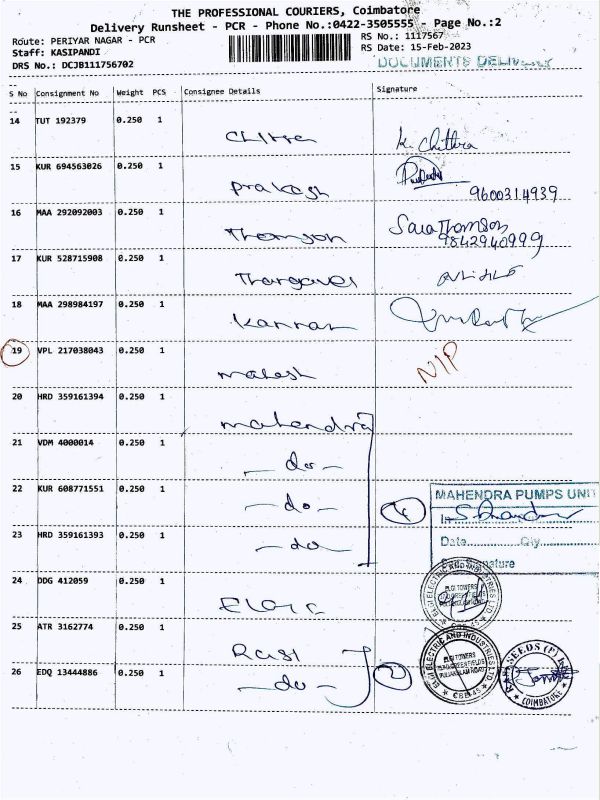 THE PROFESSIONAL COURIERS, Coimbatore
Delivery Runsheet - PCR - Phone No.:0422-3505555 - Page No.:2
Route: PERIYAR NAGAR - PCR RS No.: 1117567
Staff: KASIPANDI RS Date: 15-Feb-2023
DRS No.: DCJB111756702 DOCUMENTS
S No Consignment No Weight PCS Consignee Details Signature
14 TUT 192379 0.250 1
Chitra K. Chithra
15 KUR 694563026 0.250 1
Prakash 9600314939
16 MAA 292092003 0.250 1
Thomson Sara Thomson
9842940999
17 KUR 528715908 0.250 1
Thangavel
18 MAA 298984197 0.250 1
Kannan
19 VPL 217038043 0.250 1 NIP
Mahesh
20 HRD 359161394 0.250 1
Mahendra
21 VDM 4000014 0.250 1
- do -
22 KUR 608771551 0.250 1
- do - 4
MAHENDRA PUMPS UNIT
23 HRD 359161393 0.250 1
- do
Date Qty
Signature
24 DDG 412059 0.250 1
ELGI ELECTRIC AND INDUSTRIES LTD
ELGI TOWERS
25 ATR 3162774 0.250 1
Rasi
26 EDQ 13444886 0.250 1
- do - 2
ELGI ELECTRIC AND INDUSTRIES LTD
ELGI TOWERS
CBE-45
SEEDS (P)
COIMBATORE